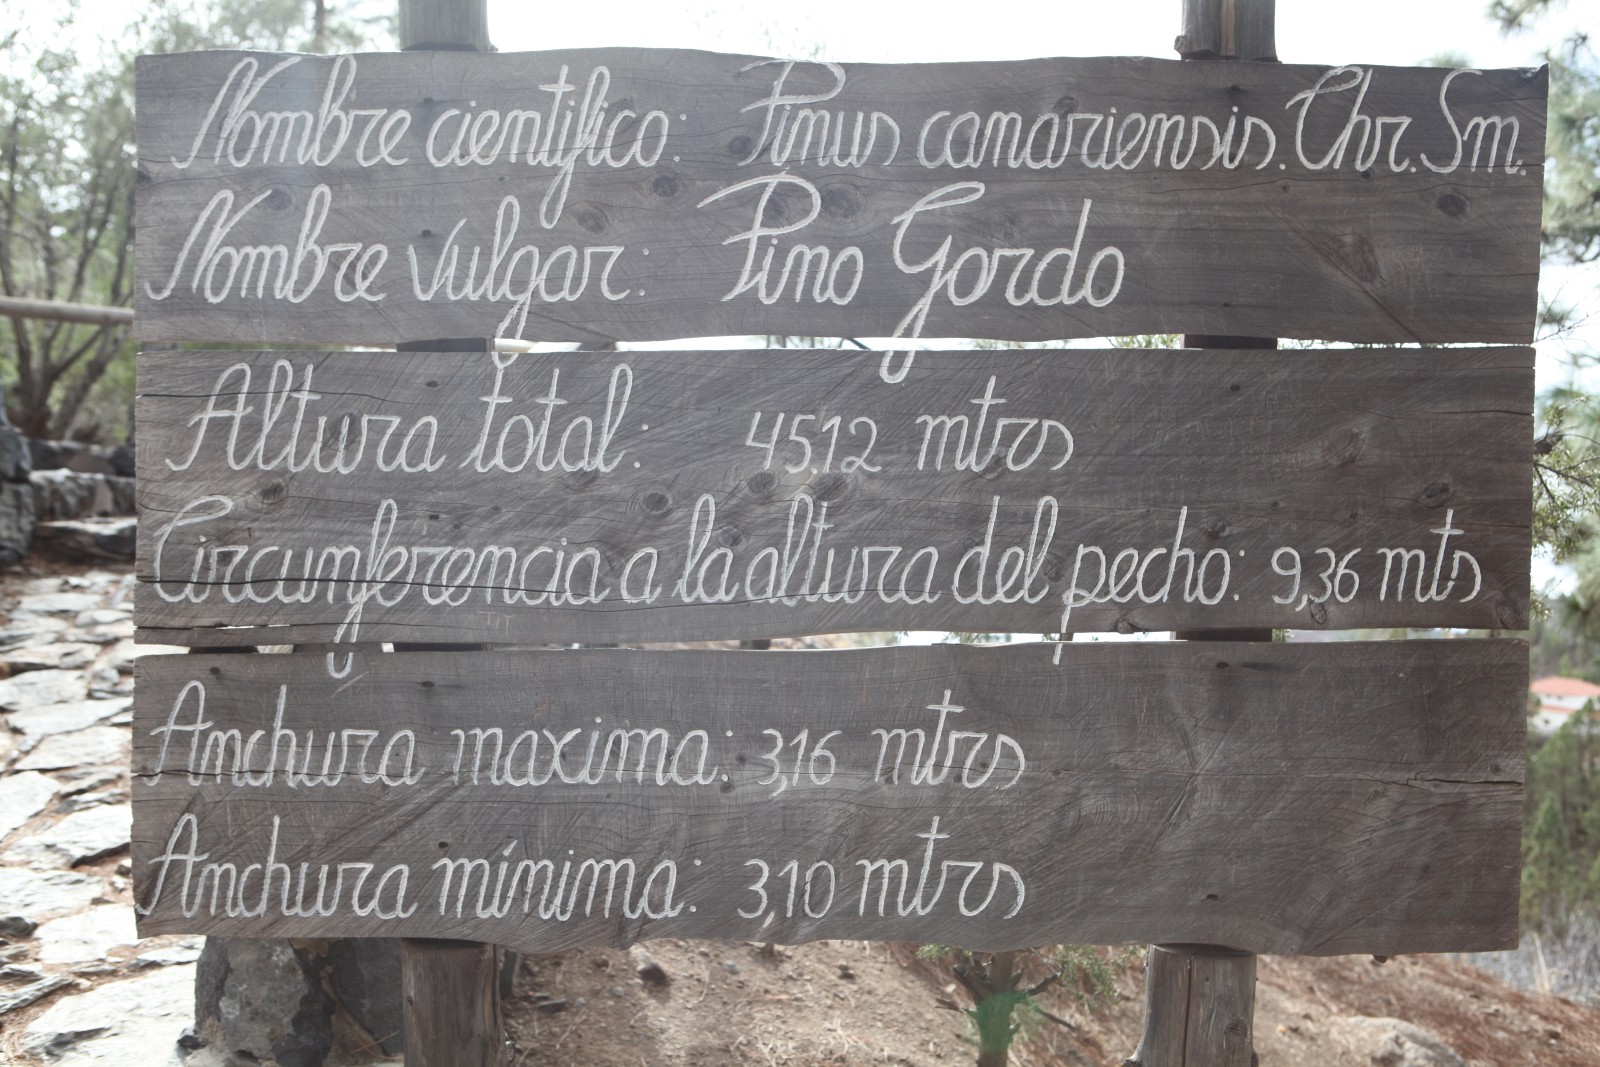 Nombre cientifico: Pinus canariensis. Chr. Sm.
Nombre vulgar: Pino Gordo
Altura total: 45,12 mtrs
Circunferencia a la altura del pecho: 9,36 mts
Anchura maxima: 3,16 mtrs
Anchura mínima: 3,10 mtrs